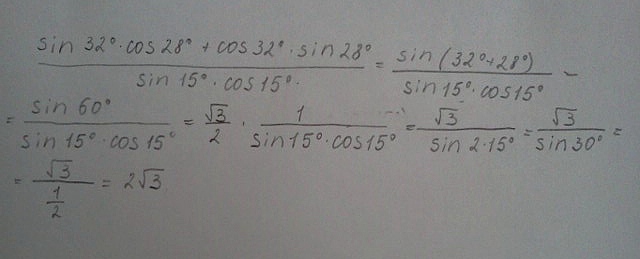 (sin 32° · cos 28° + cos 32° · sin 28°) / (sin 15° · cos 15°) = sin (32° + 28°) / (sin 15° · cos 15°) –
= sin 60° / (sin 15° · cos 15°) = √3 / 2 · 1 / (sin 15° · cos 15°) = √3 / (sin 2 · 15°) = √3 / sin 30° =
= √3 / (1 / 2) = 2√3